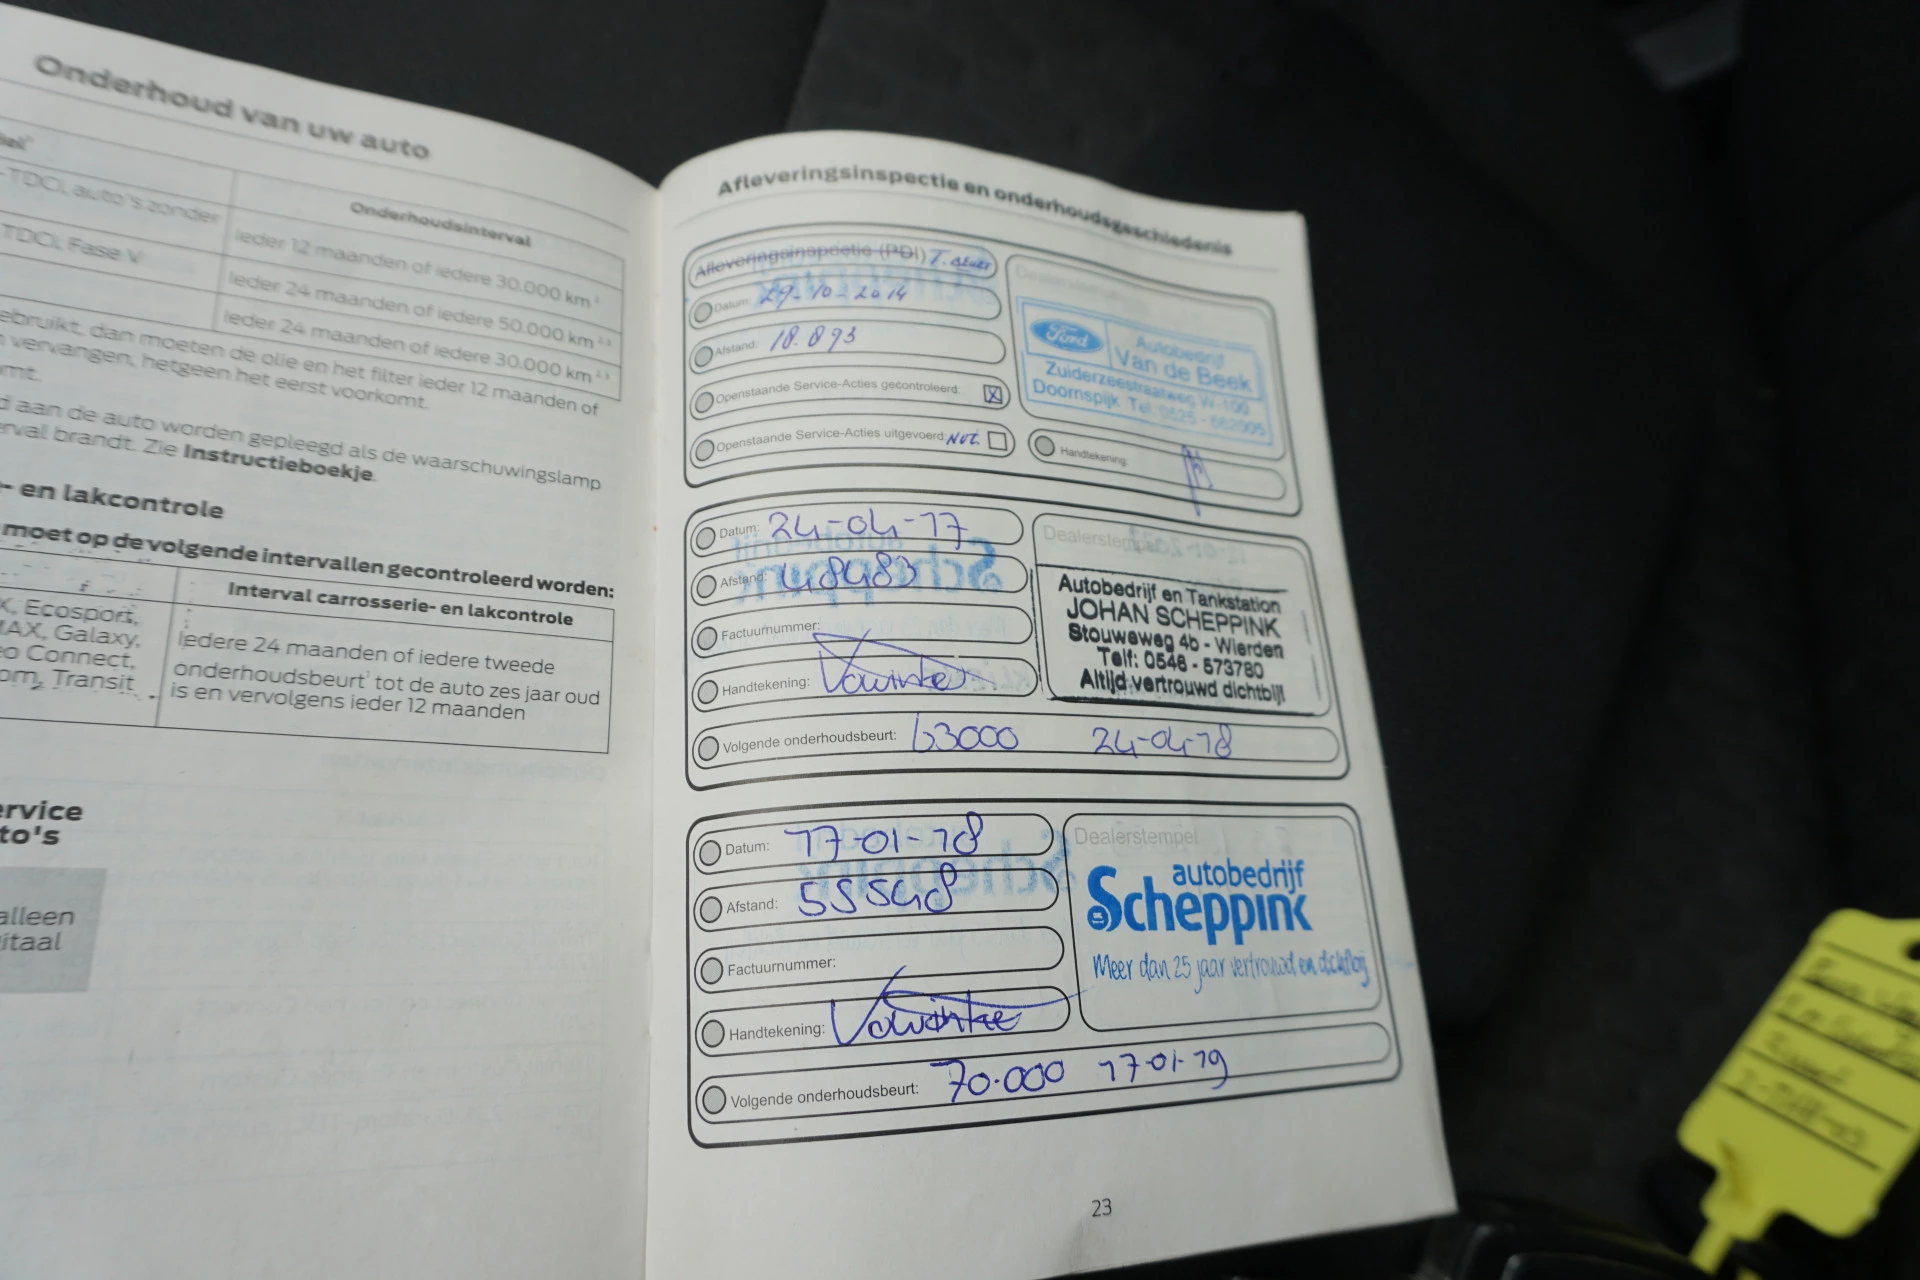 Onderhoud van uw auto
Onderhoudsinterval
-TDCi, auto's zonder
Ieder 12 maanden of iedere 30.000 km
TDCi, Fase V
Ieder 24 maanden of iedere 50.000 km
Ieder 24 maanden of iedere 30.000 km
ebruikt, dan moeten de olie en het filter ieder 12 maanden of
vervangen, hetgeen het eerst voorkomt.
mt.
d aan de auto worden gepleegd als de waarschuwingslamp
erval brandt. Zie Instructieboekje.
- en lakcontrole
moet op de volgende intervallen gecontroleerd worden:
Interval carrosserie- en lakcontrole
X, Ecosport,
MAX, Galaxy,
eo Connect,
om, Transit
Iedere 24 maanden of iedere tweede
onderhoudsbeurt¹ tot de auto zes jaar oud
is en vervolgens ieder 12 maanden
ervice
to's
alleen
itaal
Afleveringsinspectie en onderhoudsgeschiedenis
Afleveringsinspectie (PDI)
Datum: 29-10-2014
Afstand: 18.893
Openstaande Service-Acties gecontroleerd: X
Openstaande Service-Acties uitgevoerd:
Ford
Autobedrijf
Van de Beek
Zuiderzeestraatweg W-100
Doornspijk Tel. 0525 -
Handtekening:
Datum: 24-04-17
Afstand: 48483
Factuurnummer:
Handtekening:
Volgende onderhoudsbeurt: 63000 24-04-18
Dealerstempel
Autobedrijf en Tankstation
JOHAN SCHEPPINK
Stouweweg 4b - Wierden
Telf: 0546 - 573780
Altijd vertrouwd dichtbij!
Datum: 17-01-18
Afstand: 55548
Factuurnummer:
Handtekening:
Volgende onderhoudsbeurt: 70.000 17-01-19
Dealerstempel
autobedrijf
Scheppink
Meer dan 25 jaar vertrouwd en dichtbij
23